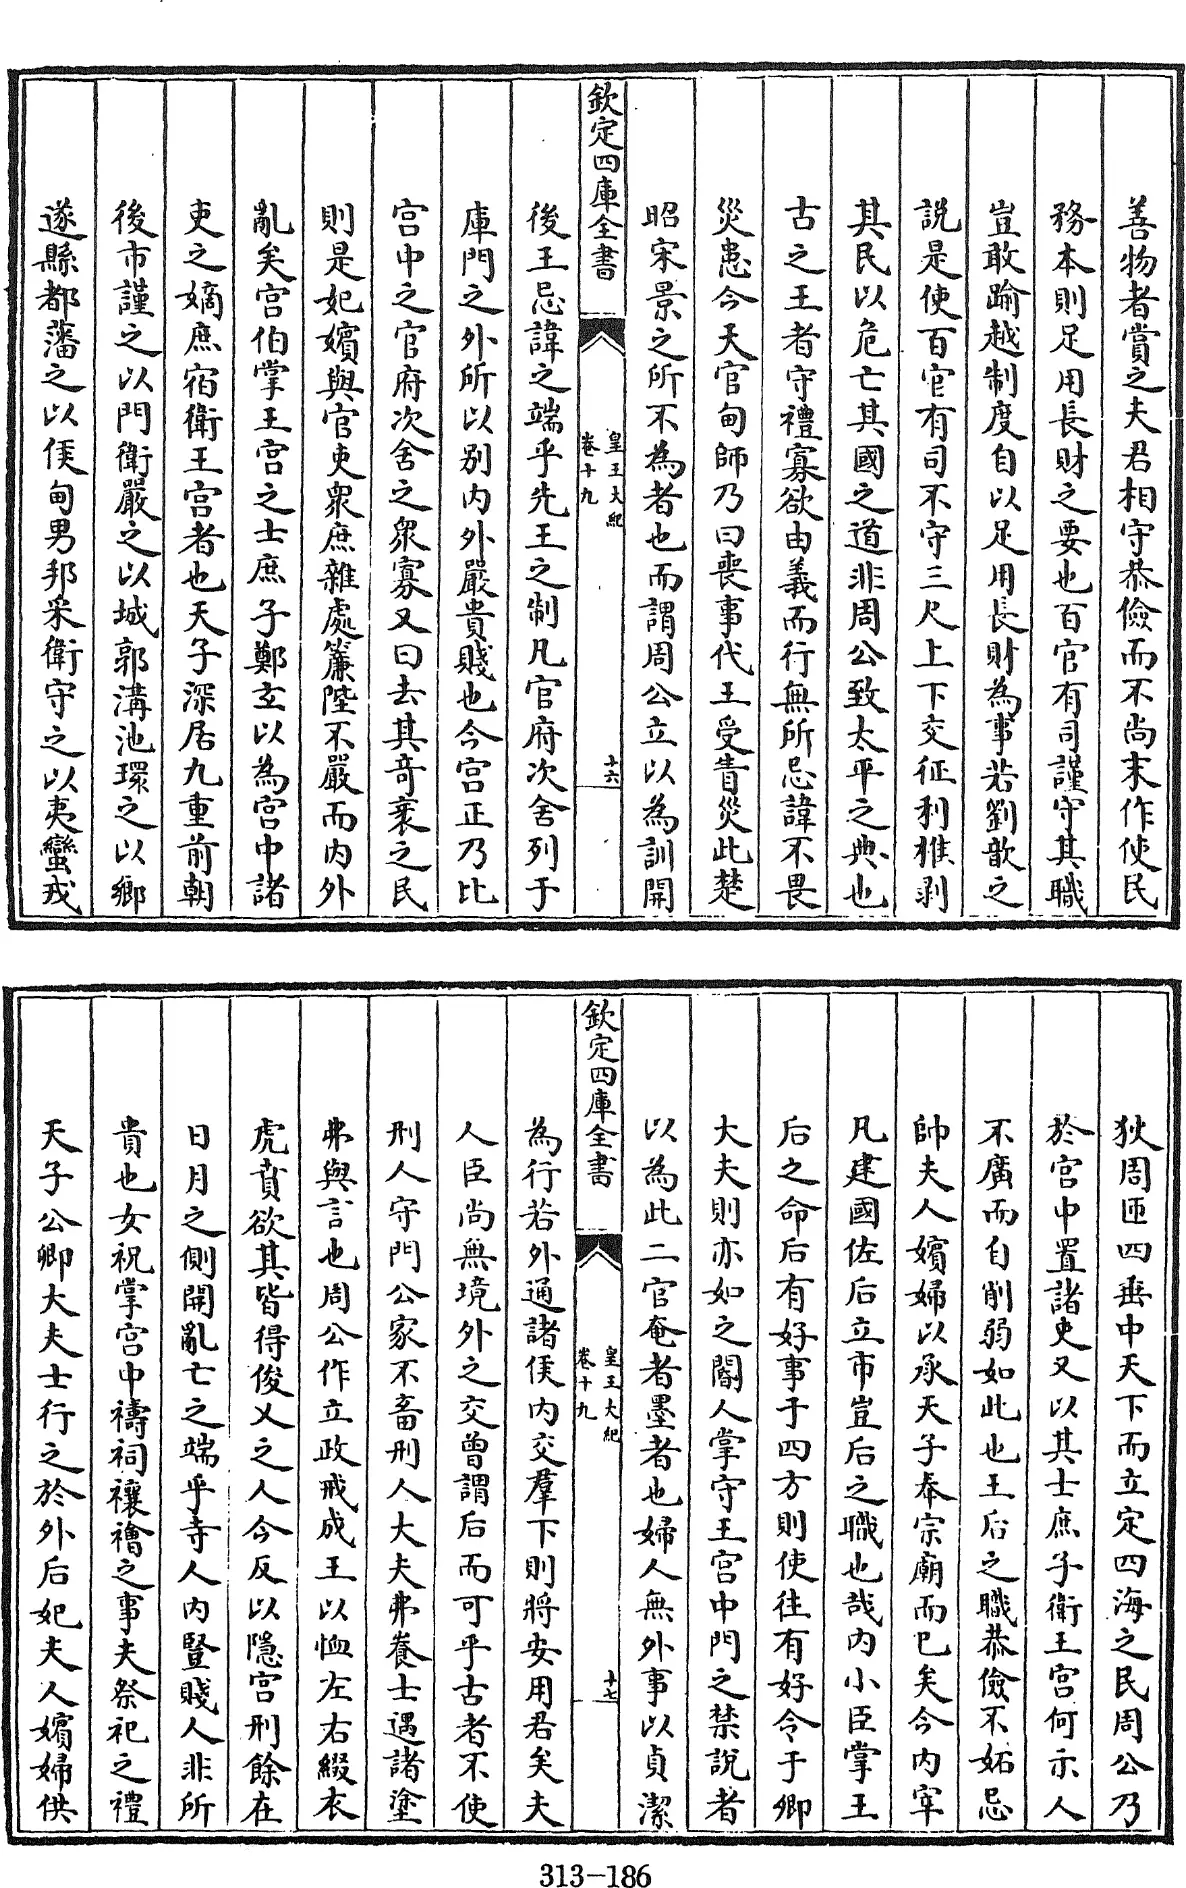 善物者賞之夫君相守恭儉而不尚末作使民
務本則足用長財之要也百官有司謹守其職
豈敢踰越制度自以足用長財為事若劉歆之
說是使百官有司不守三尺上下交征利推剥
其民以危亡其國之道非周公致太平之典也
古之王者守禮寡欲由義而行無所忌諱不畏
災患今天官甸師乃曰喪事代王受眚災此楚
昭宋景之所不為者也而謂周公立以為訓開
欽定四庫全書
皇王大紀
卷十九
十六
後王忌諱之端乎先王之制凡官府次舍列于
庫門之外所以别内外嚴貴賤也今宫正乃比
宫中之官府次舍之衆寡又曰去其竒衺之民
則是妃嬪與官吏衆庶雜處簾陛不嚴而内外
亂矣宫伯掌王宫之士庶子鄭玄以為宫中諸
吏之嫡庶宿衛王宫者也天子深居九重前朝
後市謹之以門衛嚴之以城郭溝池環之以鄉
遂縣都藩之以侯甸男邦采衛守之以夷蠻戎
狄周匝四垂中天下而立定四海之民周公乃
於宫中置諸吏又以其士庶子衛王宫何示人
不廣而自削弱如此也王后之職恭儉不妬忌
帥夫人嬪婦以承天子奉宗廟而已矣今内宰
凡建國佐后立市豈后之職也哉内小臣掌王
后之命后有好事于四方則使往有好令于卿
大夫則亦如之閽人掌守王宫中門之禁説者
以為此二官奄者墨者也婦人無外事以貞潔
欽定四庫全書
皇王大紀
卷十九
十七
為行若外通諸侯内交羣下則將安用君矣夫
人臣尚無境外之交曾謂后而可乎古者不使
刑人守門公家不畜刑人大夫弗養士遇諸塗
弗與言也周公作立政戒成王以恤左右綴衣
虎賁欲其皆得俊乂之人今反以隱宫刑餘在
日月之側開亂亡之端乎寺人内豎賤人非所
貴也女祝掌宫中禱祠禳禬之事夫祭祀之禮
天子公卿大夫士行之於外后妃夫人嬪婦供
313-186